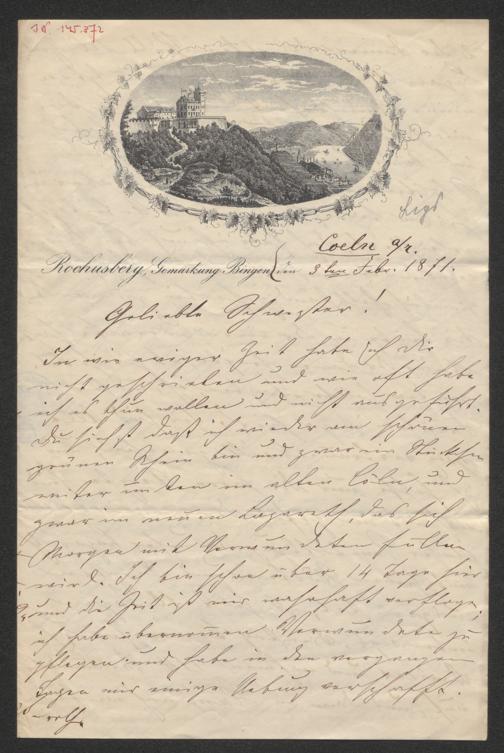 IN 145.872
Ligs
Coeln a/R.
Rochusberg, Gemarkung Bingen, den 3ten Febr. 1871.
Geliebte Schwester!
In wie ewiger Zeit habe ich Dir
nicht geschrieben und wie oft habe
ich es thun wollen und nicht ausgeführt.
Du siehst daß ich wieder am schönen
grünen Rhein bin und zwar ein Stückchen
weiter unten im alten Cöln, und
zwar im neuen Lazareth, das sich
Morgen mit Verwundeten füllen
wird. Ich bin schon über 14 Tage hier
und die Zeit ist mir wahrhaft verflogen,
ich habe übernommen Verwundete zu
pflegen und habe in den vergangenen
Tagen mir einige Uebung verschafft.